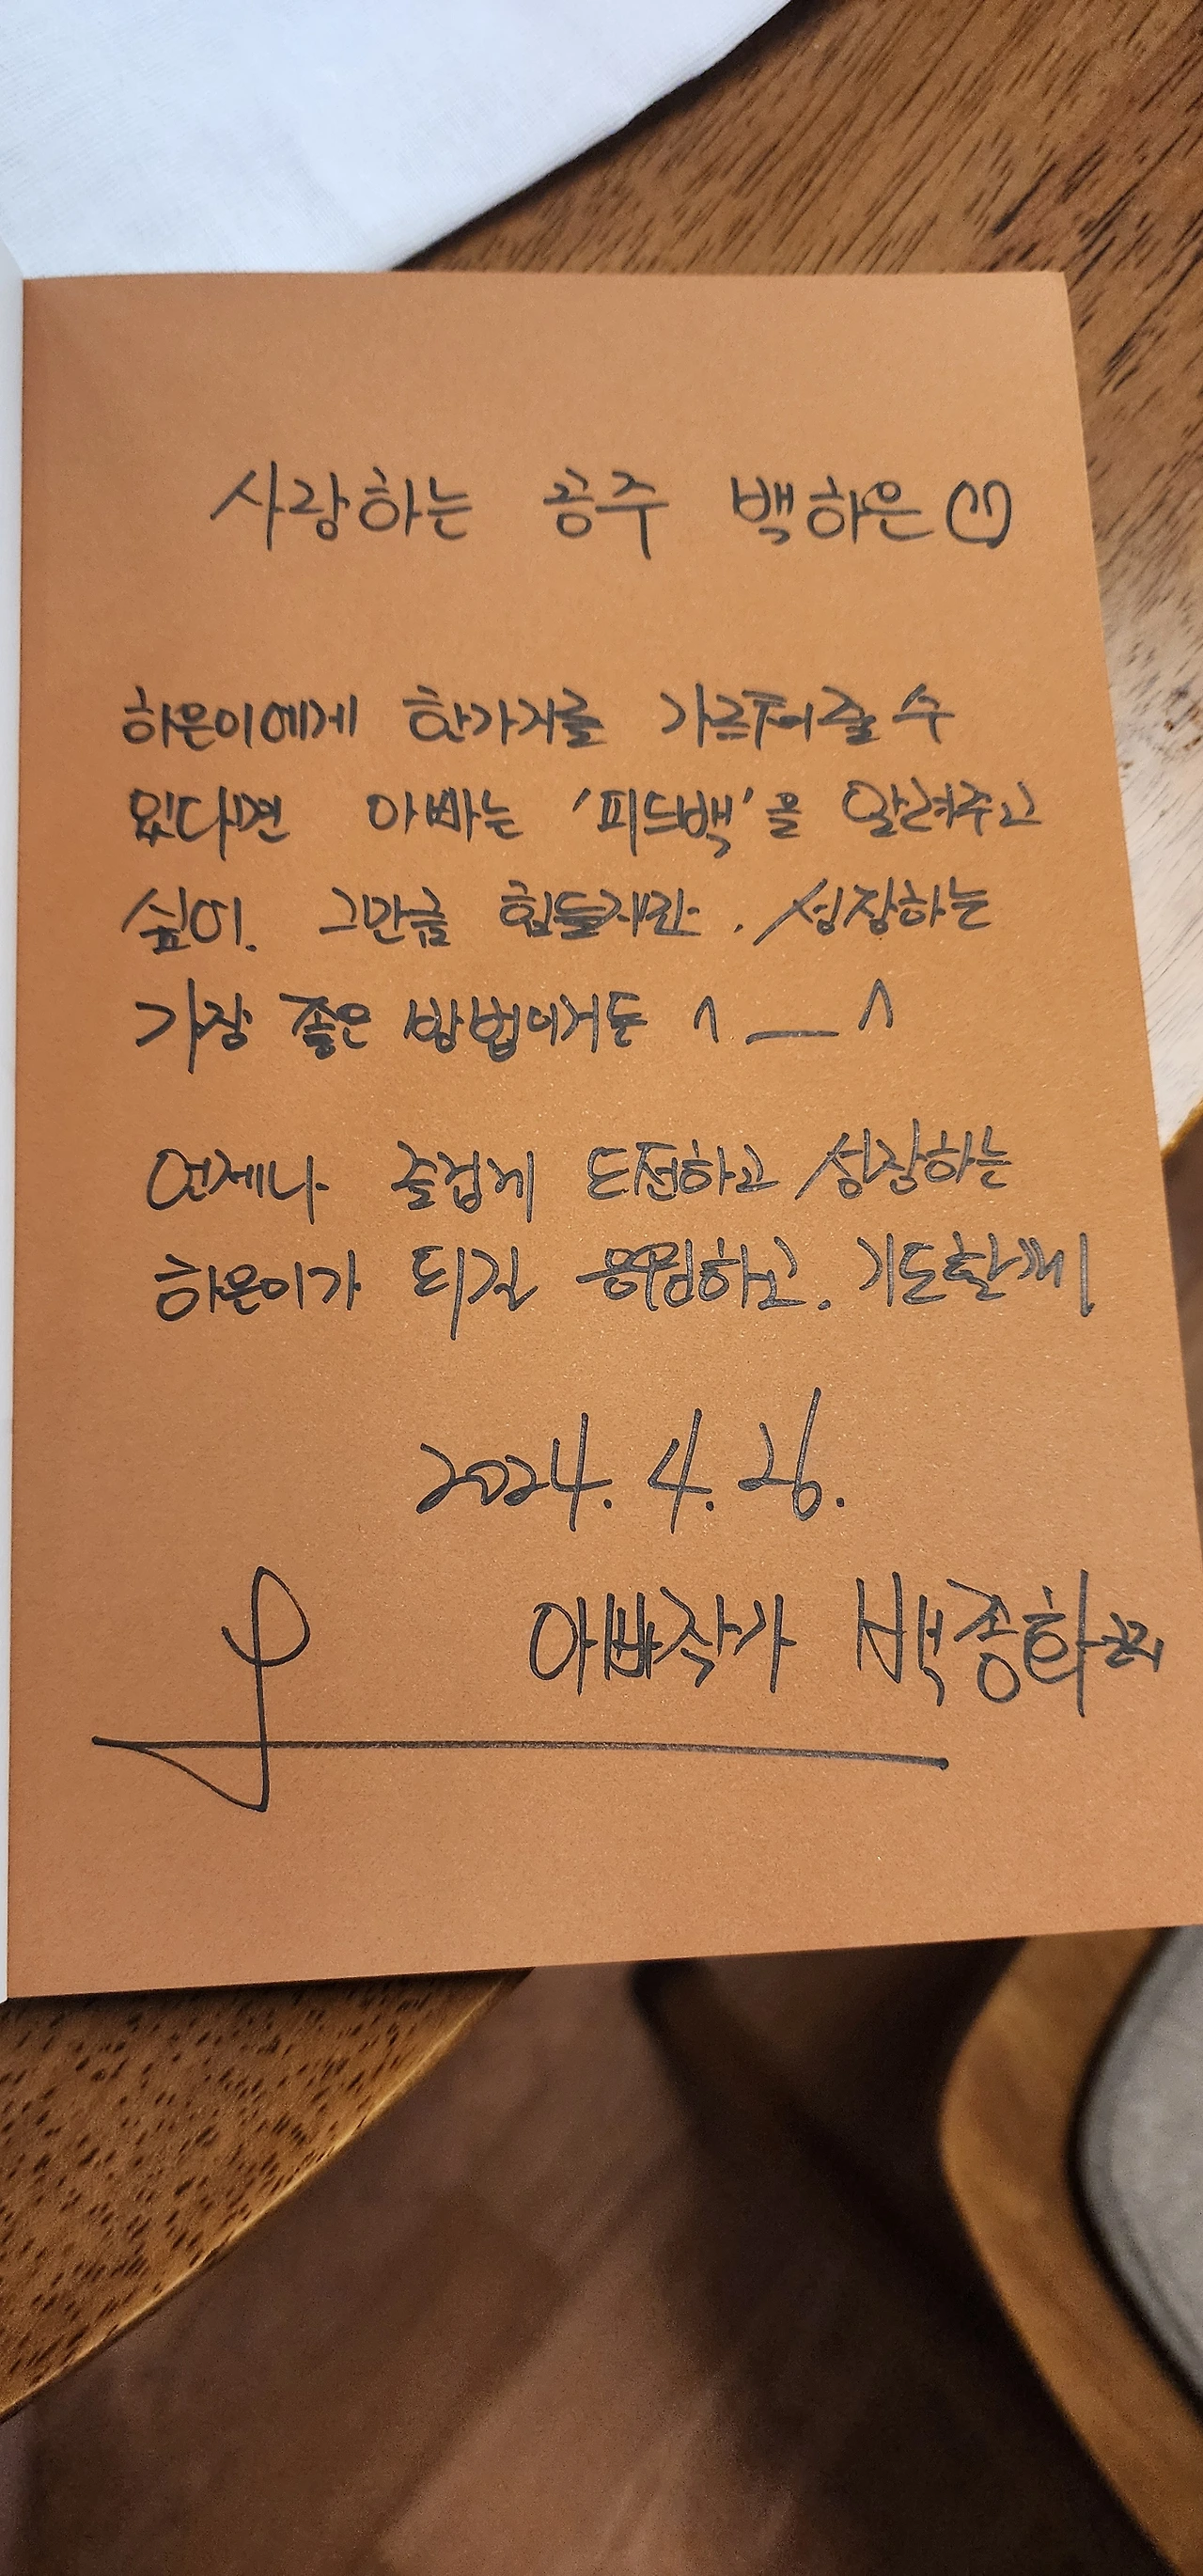 사랑하는 공주 백하은♡
하은이에게 한가지를 가르쳐줄 수
있다면 아빠는 '피드백'을 알려주고
싶어. 그만큼 힘들지만. 성장하는
가장 좋은 방법이거든 ^__^
언제나 즐겁게 도전하고 성장하는
하은이가 되길 응원하고. 기도할게
2024. 4. 26.
아빠작가 백종화